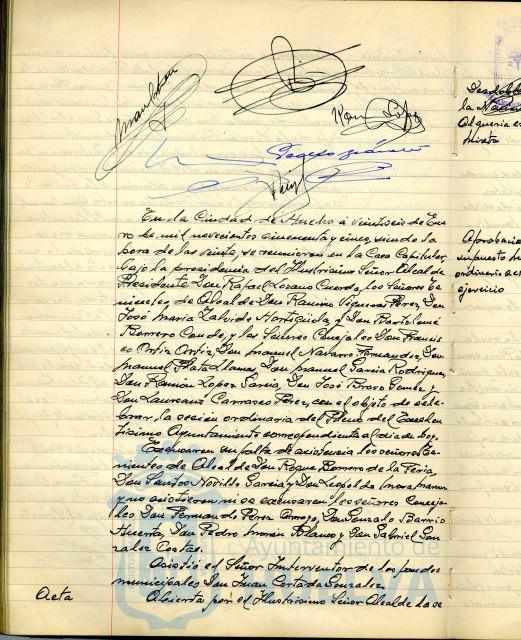 En la Ciudad de Huelva á veintiseis de Ene
ro de mil novecientos cincuenta y cinco, siendo la
hora de las veinte, se reunieron en la Casa Capitular,
bajo la presidencia del Ilustrisimo Señor Alcalde
Presidente Don Rafael Lozano Cuerda, los señores Te
nientes de Alcalde Don Ramiro Vigueras Perez, Don
José Maria Zalvide Hortigüela, y Don Bartolomé
Borrero Conde, y los Señores Concejales Don Francis
co Ortiz Ortiz, Don Manuel Navarro Fernandez, Don
Manuel Plata Llamas, Don Manuel Garcia Rodriguez,
Don Ramón Lopez Garcia, Don José Bravo y
Don Laureano Carrasco Perez, con el objeto de cele-
brar, la sesión ordinaria del Pleno del Excelen
tisimo Ayuntamiento correspondiente al dia de hoy.
Excusaron su falta de asistencia los señores Te-
nientes de Alcalde Don Roque Borrero de la Feria,
Don Santos Novillo Garcia y Don Leopoldo Mora
y no asistieron ni se excusaron los señores Conceja-
les Don Fernando Perez, Don Gonzalo Barrio
Huerta, Don Pedro Morón Blanco y Don Gabriel Gon
zalez Costas.
Asistió el Señor Interventor de los fondos
municipales Don Juan Cortada Gonzalez.
Acta
Abierta por el Ilustrisimo Señor Alcalde la se
la
Alqueria
Aprobación
supuesto
ordinario
ejercicio
Ayuntamiento de
HUELVA